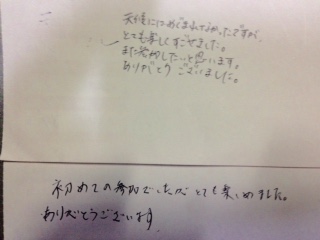 天候にはめぐまれてなかったですが、
とても楽しくすごせました。
また参加したいと思います。
ありがとうございました。
初めての参加でしたが とても楽しめました。
ありがとうございます